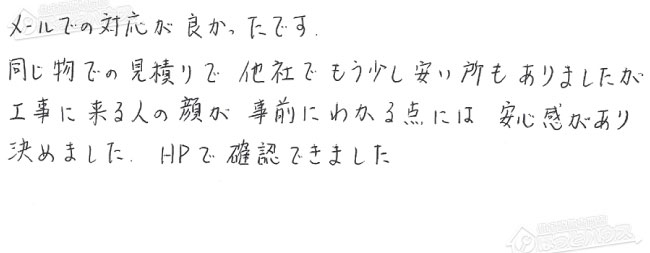 メールでの対応が良かったです.
同じ物での見積りで 他社でもう少し安い所もありましたが
工事に来る人の顔が 事前にわかる点には 安心感があり
決めました. HPで確認できました